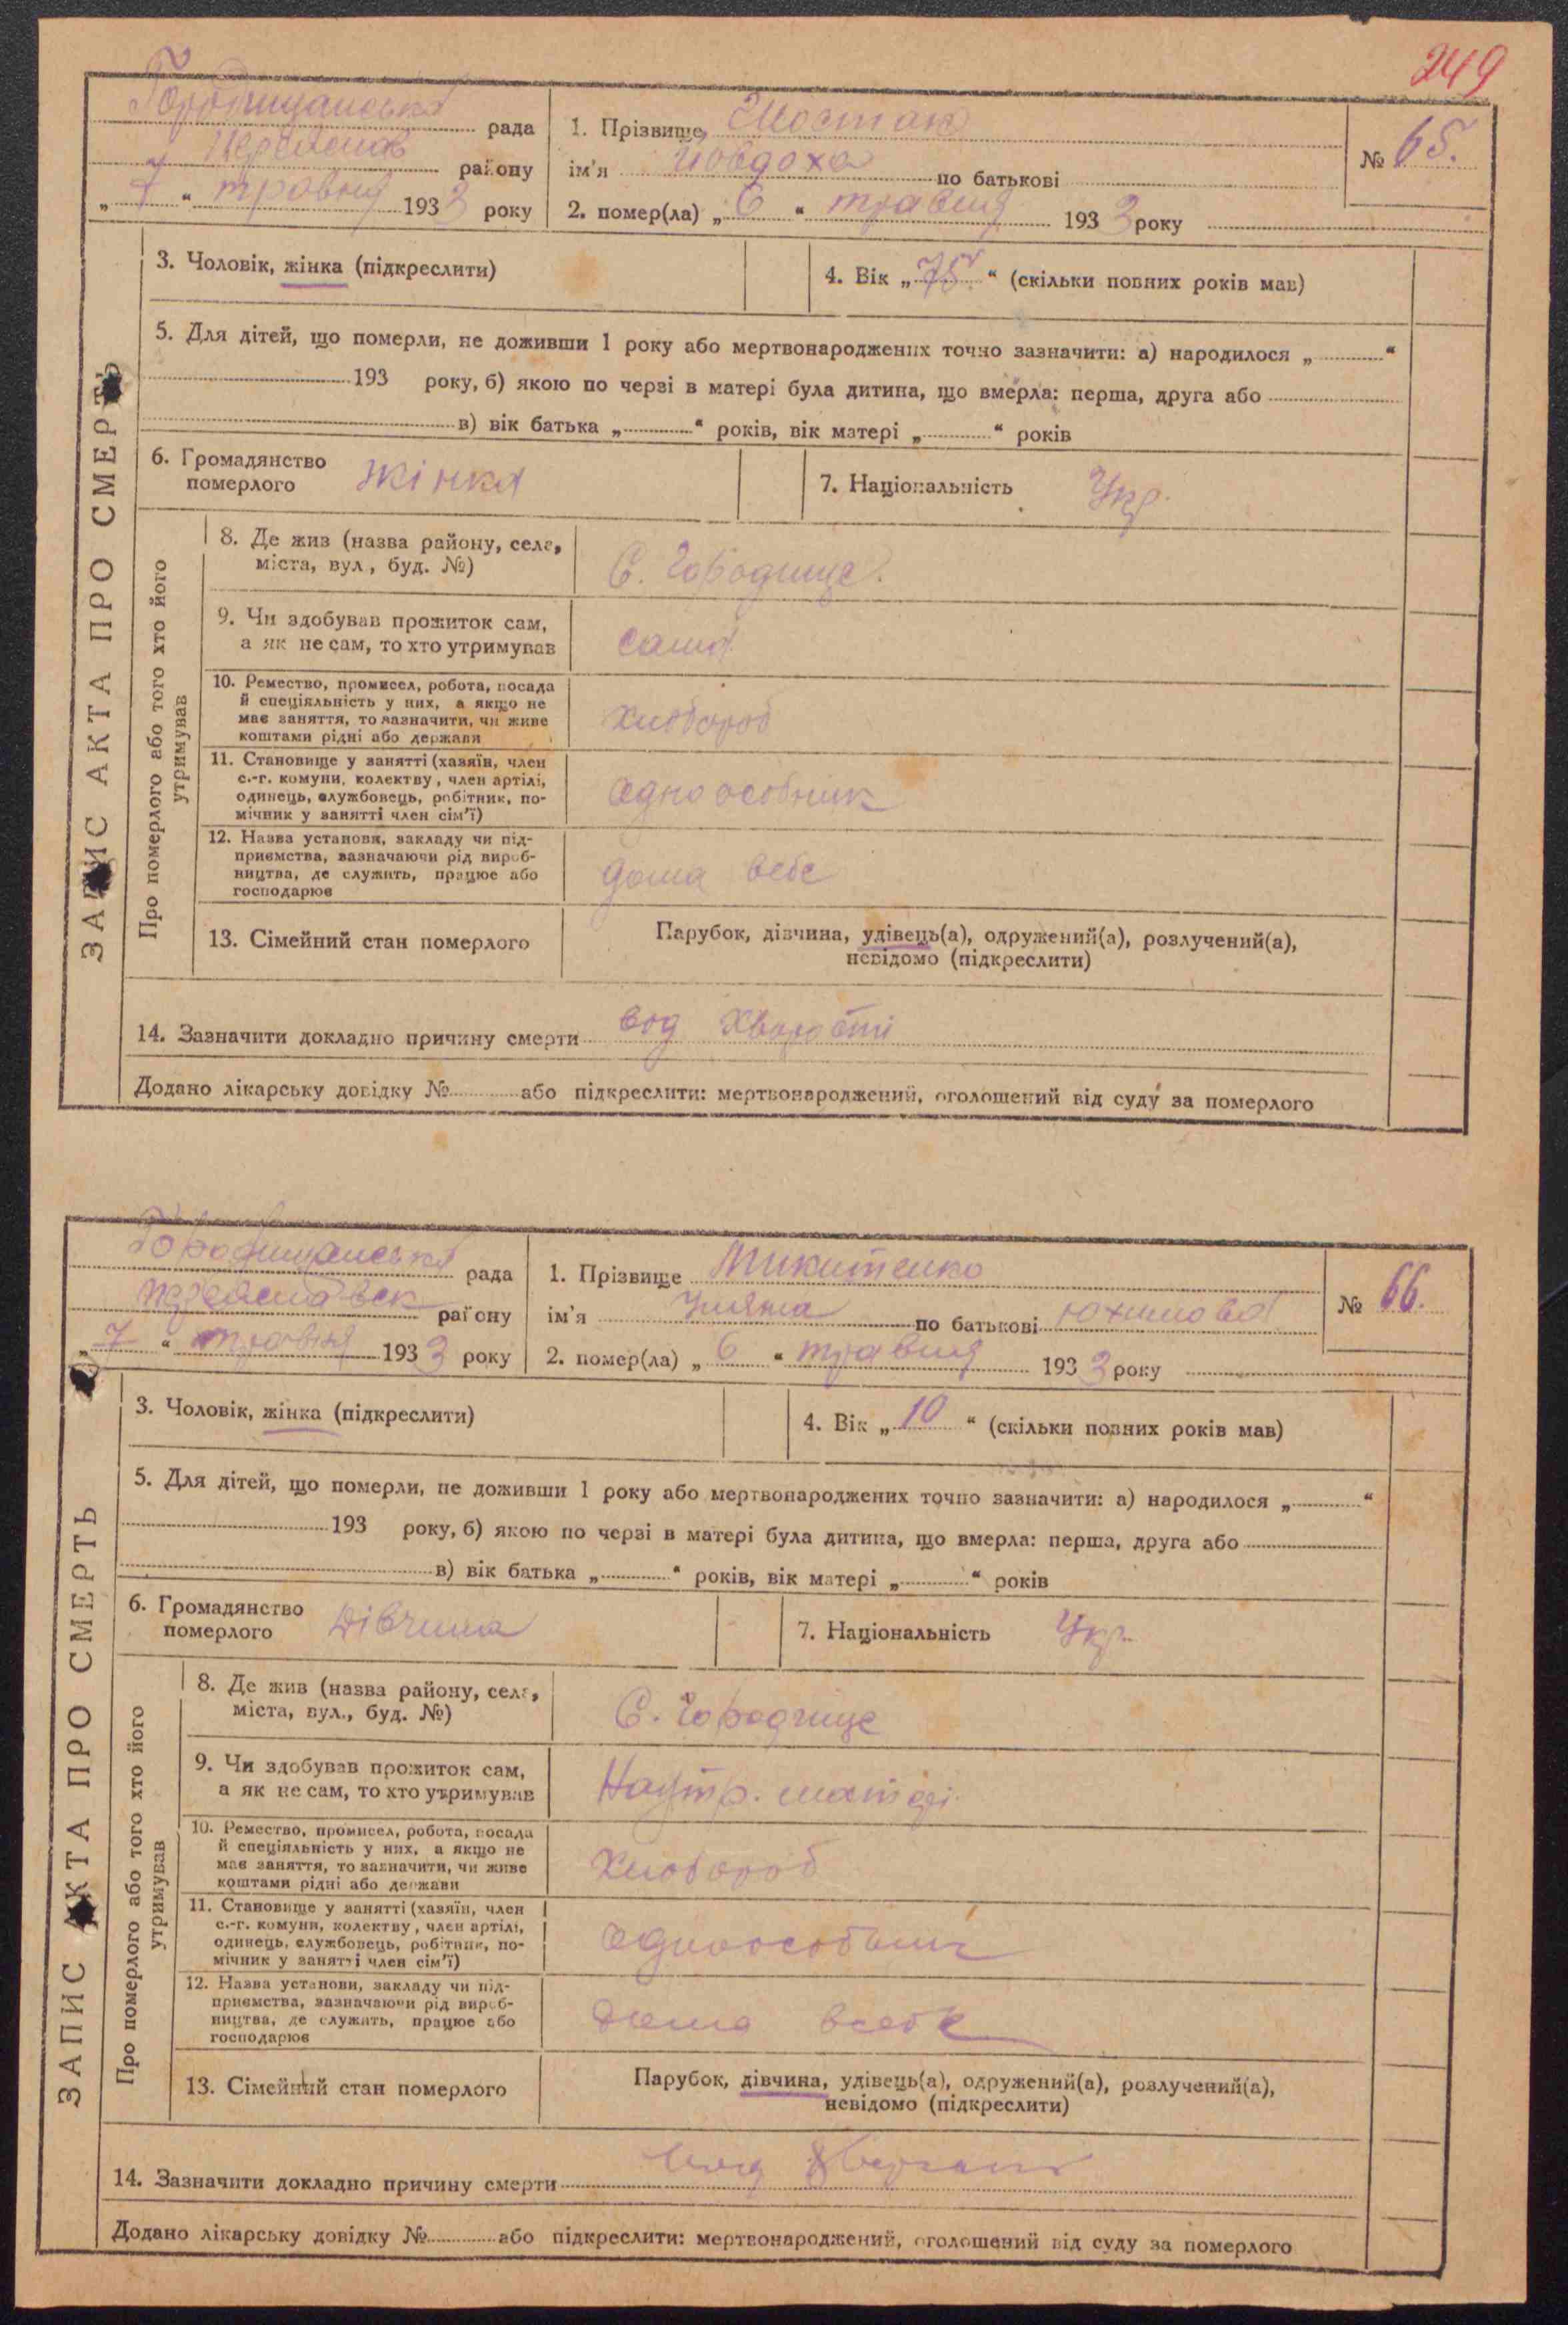 249
Городищанська рада
Переяслав району
„ 7 “ травня 1933 року
1. Прізвище Шостак
ім'я Йовдоха по батькові
2. помер(ла) „ 6 “ травня 1933 року
№ 65.
ЗАПИС АКТА ПРО СМЕРТЬ
3. Чоловік, жінка (підкреслити)
4. Вік „ 75 “ (скільки повних років мав)
5. Для дітей, що померли, не доживши 1 року або мертвонароджених точно зазначити: а) народилося „ “
193 року, б) якою по черзі в матері була дитина, що вмерла: перша, друга або
в) вік батька „ “ років, вік матері „ “ років
6. Громадянство
померлого жінка
7. Національність Укр.
Про померлого або того хто його
утримував
8. Де жив (назва району, села,
міста, вул., буд. №)
С. Городище.
9. Чи здобував прожиток сам,
а як не сам, то хто утримував
сама
10. Ремество, промисел, робота, посада
й спеціяльність у них, а якщо не
має заняття, то зазначити, чи живе
коштами рідні або держави
Хлібороб
11. Становище у занятті (хазяїн, член
с.-г. комуни, колектву, член артілі,
одинець, службовець, робітник, по-
мічник у занятті член сім'ї)
одноособник
12. Назва установи, закладу чи під-
приємства, зазначаючи рід вироб-
ництва, де служить, працює або
господарює
дома в себе
13. Сімейний стан померлого
Парубок, дівчина, удівець(а), одружений(а), розлучений(а),
невідомо (підкреслити)
14. Зазначити докладно причину смерти вод хвороби
Додано лікарську довідку № або підкреслити: мертвонароджений, оголошений від суду за померлого
Городищанська рада
Переяславск району
„ 7 “ травня 1933 року
1. Прізвище Микитенко
ім'я Уляна по батькові Юхимова
2. помер(ла) „ 6 “ травня 1933 року
№ 66.
ЗАПИС АКТА ПРО СМЕРТЬ
3. Чоловік, жінка (підкреслити)
4. Вік „ 10 “ (скільки повних років мав)
5. Для дітей, що померли, не доживши 1 року або мертвонароджених точно зазначити: а) народилося „ “
193 року, б) якою по черзі в матері була дитина, що вмерла: перша, друга або
в) вік батька „ “ років, вік матері „ “ років
6. Громадянство
померлого Дівчина
7. Національність Укр.
Про померлого або того хто його
утримував
8. Де жив (назва району, села,
міста, вул., буд. №)
С. Городище
9. Чи здобував прожиток сам,
а як не сам, то хто утримував
На утр. матері
10. Ремество, промисел, робота, посада
й спеціяльність у них, а якщо не
має заняття, то зазначити, чи живе
коштами рідні або держави
Хлібороб
11. Становище у занятті (хазяїн, член
с.-г. комуни, колектву, член артілі,
одинець, службовець, робітник, по-
мічник у занятті член сім'ї)
одноособник
12. Назва установи, закладу чи під-
приємства, зазначаючи рід вироб-
ництва, де служить, працює або
господарює
дома в себе
13. Сімейний стан померлого
Парубок, дівчина, удівець(а), одружений(а), розлучений(а),
невідомо (підкреслити)
14. Зазначити докладно причину смерти
Додано лікарську довідку № або підкреслити: мертвонароджений, оголошений від суду за померлого